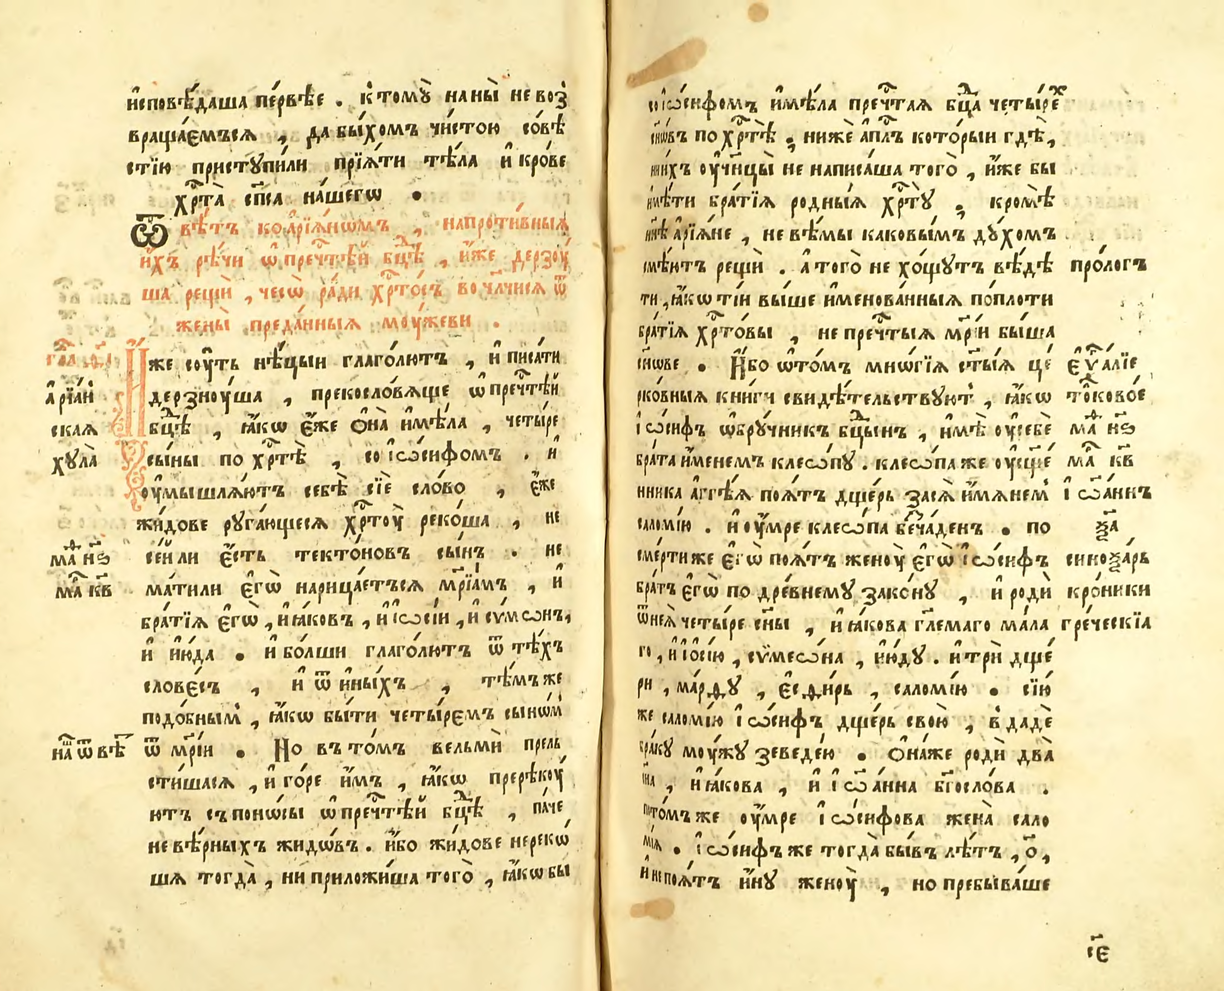 и҆сповѣ́даша пе́рвѣе . к̾томꙋ̀ на ны̀ не воз̾
враща́емъсѧ , да бы́хомъ чи́стою со́вѣ
стїю пристꙋпи́ли прїѧ́ти тѣ́ла и҆ кро́ве
хрⷭ҇та̀ сп҃са на́шегѡ •
Ѿвѣ́тъ ко а҆рїѧ́нѡмъ , напроти́вныѧ
и҆́хъ рѣ́чи ѡ҆ пречⷭ҇тѣй бц҃ѣ , и҆́же дерзоу́
ша рещѝ , чесѡ̀ ра́ди хрⷭ҇то́съ во чл҃чисѧ ѿ
жены̀ преда́нныѧ моу́жеви .
И҆́же соу́ть нѣ́цыи глаго́лютъ , и҆ писа́ти
дерзноу́ша , прекосло́вѧще ѡ҆ пречⷭ҇тѣй
бц҃ѣ , ꙗ҆́кѡ є҆́же ѻ҆на̀ и҆мѣ́ла , четы́ре
сы́ны по хрⷭ҇тѣ̀ , со і҆ѡ́сифомъ . и҆
оу҆мышлѧ́ютъ себѣ̀ сїѐ сло́во , є҆́же
жи́дове рꙋга́ющесѧ хрⷭ҇тоу̀ реко́ша , не
се́й ли є҆́сть текто́новъ сы́нъ . не
ма́ти ли є҆гѡ̀ нарица́етьсѧ мр҃їа́мъ , и҆
бра́тїѧ є҆гѡ̀ , и҆ꙗ́ковъ , и҆ і҆ѡсі́и , и҆ сѵ́мѡнъ ,
и҆ и҆ю́да • и҆ бо́лши глаго́лютъ ѿ тѣ́хъ
слове́съ , и҆ ѿ и҆ны́хъ , тѣ́мъ же
подо́бнымъ , ꙗ҆́кѡ бы́ти четы́рємъ сынѡ́м̾
ѿ мр҃і́и • Но въ то́мъ вельмѝ прель
сти́шасѧ , и҆ го́ре и҆̀мъ , ꙗ҆́кѡ пререкоу́
ютъ съ поно́сы ѡ҆ пречⷭ҇тѣй бц҃ѣ , па́че
невѣ́рныхъ жидѡ́въ . и҆́бо жи́дове не рекѡ́
шѧ тогда̀ , ни приложи́ша того̀ , ꙗ҆́кѡ бы
а҆рїа́н̾
скаѧ
хꙋла̀
маⷴ҇ н҃ѕ
маⷬ҇ к҃в
наѿвѣⷮ҇
со і҆ѡ́сифомъ и҆мѣ́ла пречⷭ҇таѧ бц҃а четы́ре
сн҃ѡвъ по хрⷭ҇тѣ̀ , нижѐ а҆пⷭ҇лъ кото́рыи гдѣ̀ ,
и҆ни́хъ оу҆чн҃цы̀ не написа́ша того̀ , и҆́же бы
и҆мѣ́ти бра́тїѧ родны́ѧ хрⷭ҇тꙋ̀ , кромѣ̀
ннѣ а҆рїѧ́не , не вѣ́мы каковы́мъ дꙋ́хомъ
смѣ́ютъ рещѝ . а҆ того̀ не хо́щꙋтъ вѣ́дѣ
ти , ꙗ҆́кѡ ті́и вы́ше и҆менова́нныѧ по пло́ти
бра́тїѧ хрⷭ҇то́вы , не пречⷭ҇тыѧ мр҃і́и бы́ша
сн҃ове • И҆́бо ѡ҆ то́мъ мнѡ́гїѧ ст҃ы́ѧ це́
рко́вныѧ кни́ги свидѣ́тельствꙋютъ , ꙗ҆́кѡ
і҆ѡ́сифъ ѡ҆брꙋ́чникъ бц҃ынъ , и҆мѣ̀ оу҆ себѐ
бра́та и҆́менемъ клеѡ́пꙋ . клеѡ́па же оу҆ сщ҃е́
нника а҆гге́ѧ поѧ́тъ дще́рь засѧ̀ и҆́мѧнем̾
салѡмі́ю . и҆ оу҆́мре клеѡ́па беча́денъ • по
сме́рти же є҆гѡ̀ поѧ́тъ женоу̀ є҆гѡ̀ і҆ѡ́сифъ
бра́тъ є҆гѡ̀ по дре́внемꙋ зако́нꙋ , и҆ родѝ
ѿнеѧ̀ четы́ре сн҃ы , и҆ ꙗ҆́кова гл҃емаго ма́ла
го , и҆ і҆ѡсі́ю , сѵмеѡ́на , и҆ю́дꙋ . и҆ трѝ дще́
ри , ма́рѳꙋ , є҆сѳи́рь , салѡмі́ю • сїю́
же салѡмі́ю і҆ѡ́сифъ дще́рь свою̀ , в̾дадѐ
бра́кꙋ моу́жꙋ зеведе́ю • Ѻ҆на́же родѝ два̀
сн҃а , и҆ ꙗ҆́кова , и҆ і҆ѡа́нна бг҃осло́ва .
пото́мъ же оу҆́мре і҆ѡ́сифова жена̀ сало
мі́ѧ • і҆ѡ́сифъ же тогда̀ бы́въ лѣ́тъ , о҃ ,
и҆ не поѧ́тъ и҆́нꙋ женоу̀ , но пребыва́ше
проло́гъ
є҆ѵⷢ҇а́лїе
то́ково́е
маⷴ҇ н҃ѕ
маⷬ҇ к҃в
і҆ѡа́нн̾
ѯ҃а
синоѯа́рь
кро́ники
гре́ческїѧ
є҃і